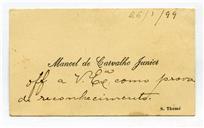 26/1/99
Manoel de Carvalho Junior
off a V. Exª como prova
de reconhecimento.
S. Thomé